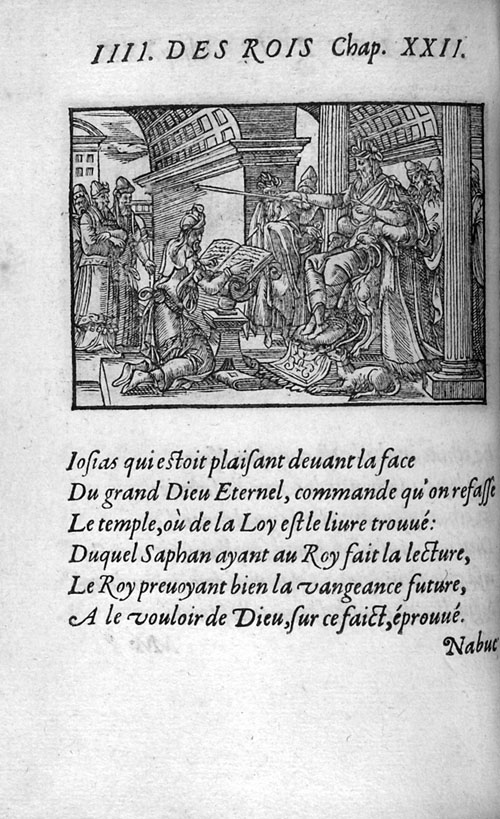 IIII. DES ROIS Chap. XXII.
Iosias qui estoit plaisant deuant la face
Du grand Dieu Eternel, commande qu'on refasse
Le temple, où de la Loy est le liure trouué:
Duquel Saphan ayant au Roy fait la lecture,
Le Roy preuoyant bien la vangeance future,
A le vouloir de Dieu, sur ce faict, éprouué.
Nabuc